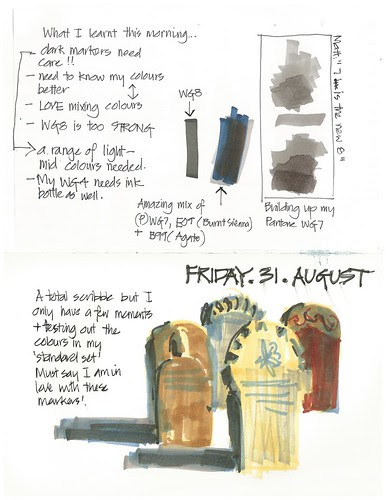 What I learnt this morning...
- dark markers need
care!!
- need to know my colours
better
- LOVE mixing colours
- WG8 is too STRONG
- a range of light-
mid colours needed.
- My WG4 needs ink
bottle as well.
WG8
Amazing mix of
(P) WG7, E07 (Burnt Sienna)
+ B99 (Agate)
Matt: "7 is the new 8"
Building up my
Pantone WG7
FRIDAY. 31. AUGUST
A total scribble but I
only have a few moments
+ testing out the
colours in my
'standard set'
Must say I am in
love with these
markers!